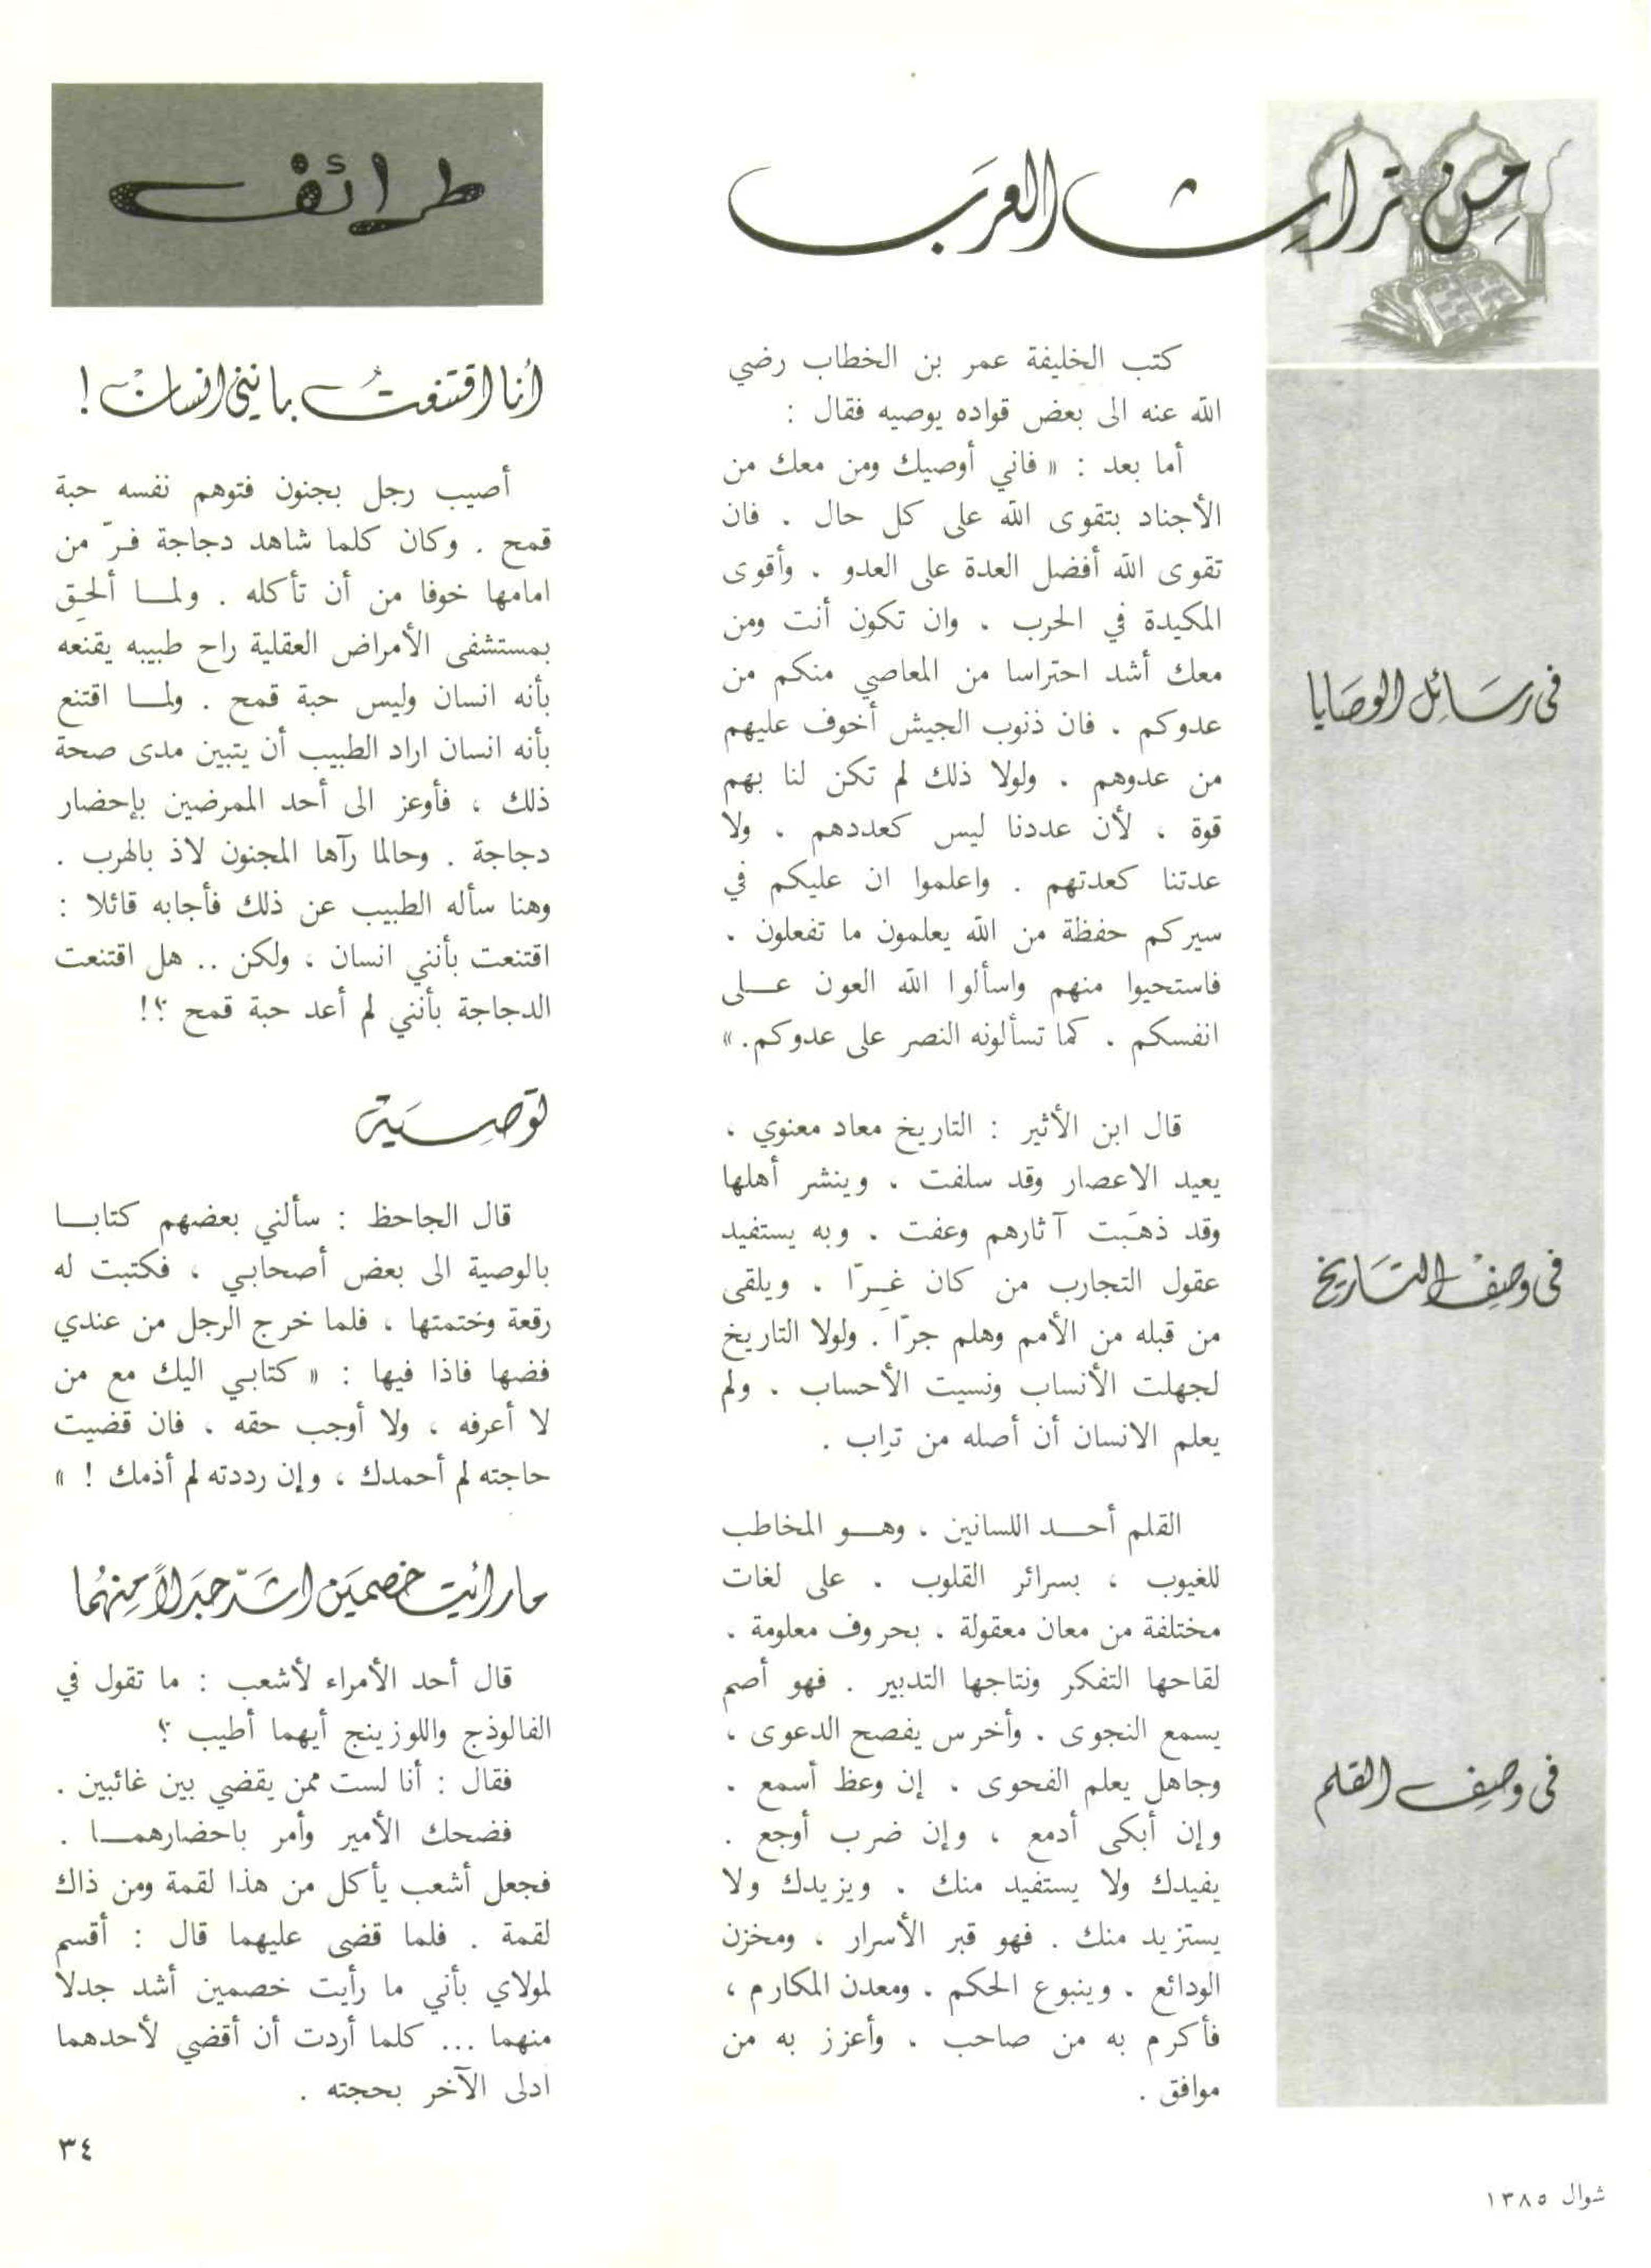 من تراث العرب
في رسائل الوصايا
كتب الخليفة عمر بن الخطاب رضي
الله عنه الى بعض قواده يوصيه فقال :
أما بعد : « فاني أوصيك ومن معك من
الأجناد بتقوى الله على كل حال . فان
تقوى الله أفضل العدة على العدو . وأقوى
المكيدة في الحرب . وان تكون أنت ومن
معك أشد احتراسا من المعاصي منكم من
عدوكم . فان ذنوب الجيش أخوف عليهم
من عدوهم . ولولا ذلك لم تكن لنا بهم
قوة ، لأن عددنا ليس كعددهم . ولا
عدتنا كعدتهم . واعلموا ان عليكم في
سيركم حفظة من الله يعلمون ما تفعلون .
فاستحيوا منهم واسألوا الله العون عــلى
انفسكم . كما تسألونه النصر على عدوكم. »
في وصف التاريخ
قال ابن الأثير : التاريخ معاد معنوي .
يعيد الاعصار وقد سلفت . وينشر أهلها
وقد ذهبت آثارهم وعفت . وبه يستفيد
عقول التجارب من كان غـرّا . ويلقى
من قبله من الأمم وهلم جرّا . ولولا التاريخ
لجهلت الأنساب ونسيت الأحساب . ولم
يعلم الانسان أن أصله من تراب .
في وصف القلم
القلم أحــد اللسانين . وهــو المخاطب
للغيوب ، بسرائر القلوب . على لغات
مختلفة من معان معقولة ، بحروف معلومة .
لقاحها التفكر ونتاجها التدبير . فهو أصم
يسمع النجوى . وأخرس يفصح الدعوى ،
وجاهل يعلم الفحوى . إن وعظ أسمع .
وإن أبكى أدمع ، وإن ضرب أوجع .
يفيدك ولا يستفيد منك . ويزيدك ولا
يستزيد منك . فهو قبر الأسرار ، ومخزن
الودائع . وينبوع الحكم . ومعدن المكارم ،
فأكرم به من صاحب . وأعزز به من
موافق .
طرائف
أنا اقتنعت بانني انسان !
أصيب رجل بجنون فتوهم نفسه حبة
قمح . وكان كلما شاهد دجاجة فـرّ من
امامها خوفا من أن تأكله . ولمــا ألحِق
بمستشفى الأمراض العقلية راح طبيبه يقنعه
بأنه انسان وليس حبة قمح . ولمــا اقتنع
بأنه انسان اراد الطبيب أن يتبين مدى صحة
ذلك ، فأوعز الى أحد الممرضين بإحضار
دجاجة . وحالما رآها المجنون لاذ بالهرب .
وهنا سأله الطبيب عن ذلك فأجابه قائلا :
اقتنعت بأنني انسان ، ولكن .. هل اقتنعت
الدجاجة بأنني لم أعد حبة قمح ؟!
توصية
قال الجاحظ : سألني بعضهم كتابــا
بالوصية الى بعض أصحابي ، فكتبت له
رقعة وختمتها ، فلما خرج الرجل من عندي
فضها فاذا فيها : « كتابي اليك مع من
لا أعرفه ، ولا أوجب حقه ، فان قضيت
حاجته لم أحمدك ، وإن رددته لم أذمك ! »
ما رأيت خصمين اشدّ جدلاً منهما
قال أحد الأمراء لأشعب : ما تقول في
الفالوذج واللوزينج أيهما أطيب ؟
فقال : أنا لست ممن يقضي بين غائبين .
فضحك الأمير وأمر باحضارهمــا .
فجعل أشعب يأكل من هذا لقمة ومن ذاك
لقمة . فلما قضى عليهما قال : أقسم
لمولاي بأني ما رأيت خصمين أشد جدلا
منهما ... كلما أردت أن أقضي لأحدهما
ادلى الآخر بحجته .
٣٤
شوال ١٣٨٥